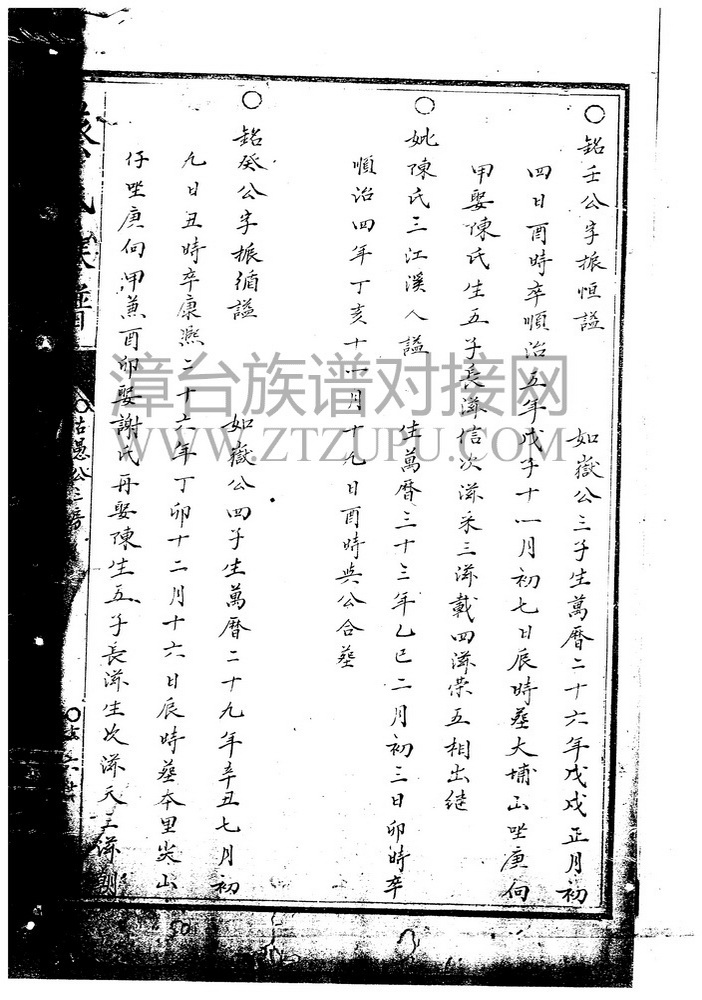 ○銘壬公字振恒謚 如嶽公三子生萬曆二十六年戊戌正月初
四日酉時卒順治五年戊子十一月初七日辰時葬大埔山坐庚向
甲娶陳氏生五子長滋信次滋采三滋載四滋榮五相出继
○妣陳氏三江溪人謚 生萬曆三十三年乙巳二月初三日卯時卒
順治四年丁亥十一月十九日酉時與公合葬
○銘癸公字振循謚 如嶽公四子生萬曆二十九年辛丑七月初
九日丑時卒康熙二十六年丁卯十二月十六日辰時葬本里尖山
仔坐庚向甲兼酉卯娶謝氏再娶陳生五子長滋生次滋天三滋訓
氏族譜
○古愚公三房
漳台族谱对接网
WWW.ZTZUPU.COM
50